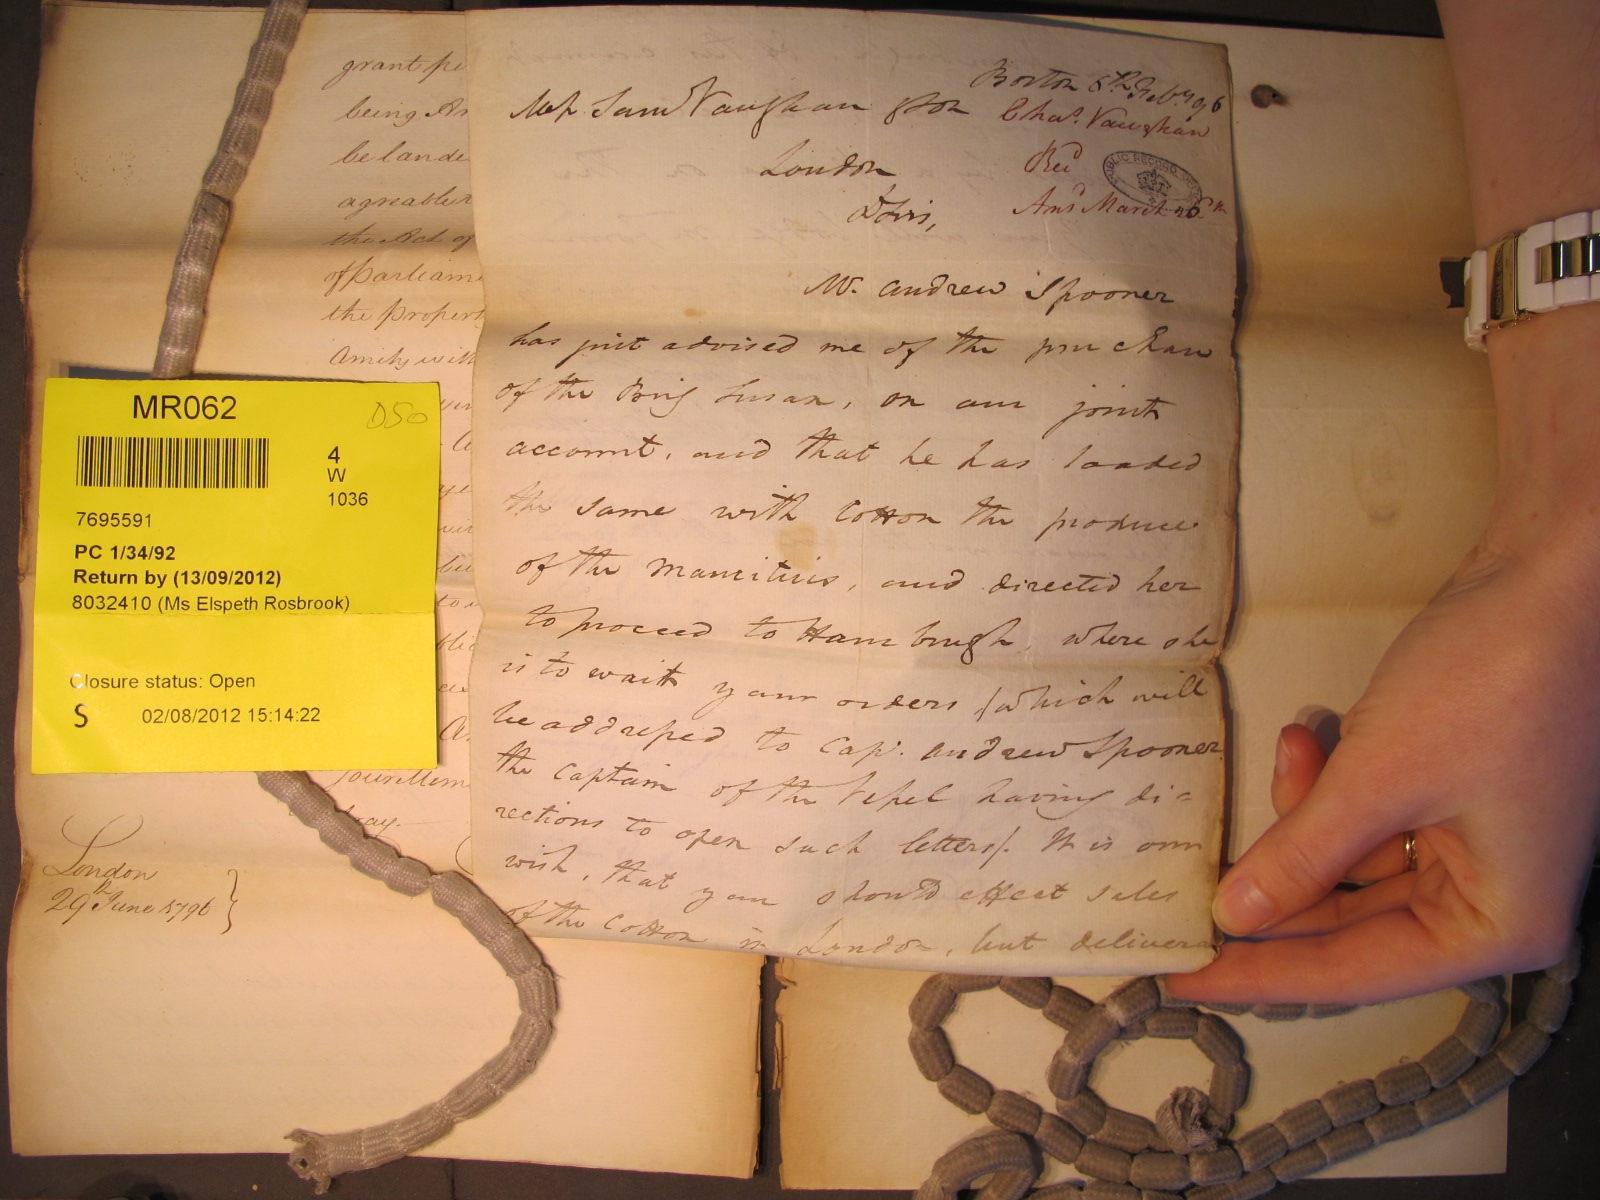 grant
being
be lande
agreable
the Act of
of Parliame
the Propert
Amity with
London
29th June 1796
MR062
D50
4
W
1036
7695591
PC 1/34/92
Return by (13/09/2012)
8032410 (Ms Elspeth Rosbrook)
Closure status: Open
S 02/08/2012 15:14:22
Boston 8th Feby 1796
Messrs Saml Vaughan & Son
London
Chas. Vaughan
Recd
PUBLIC RECORD OFFICE
Ansd March 26th
Sirs,
Mr. Andrew Spooner
has just advised me of the purchase
of the Brig Susan, on our joint
account, and that he has loaded
the same with Cotton the produce
of the Mauritius, and directed her
to proceed to Hamburgh, where she
is to wait your orders (which will
be addressed to Capt. Andrew Spooner
the Captain of the Vessel having di=
rections to open such letters). It is our
wish, that you should effect sales
of the Cotton in London, but delivera